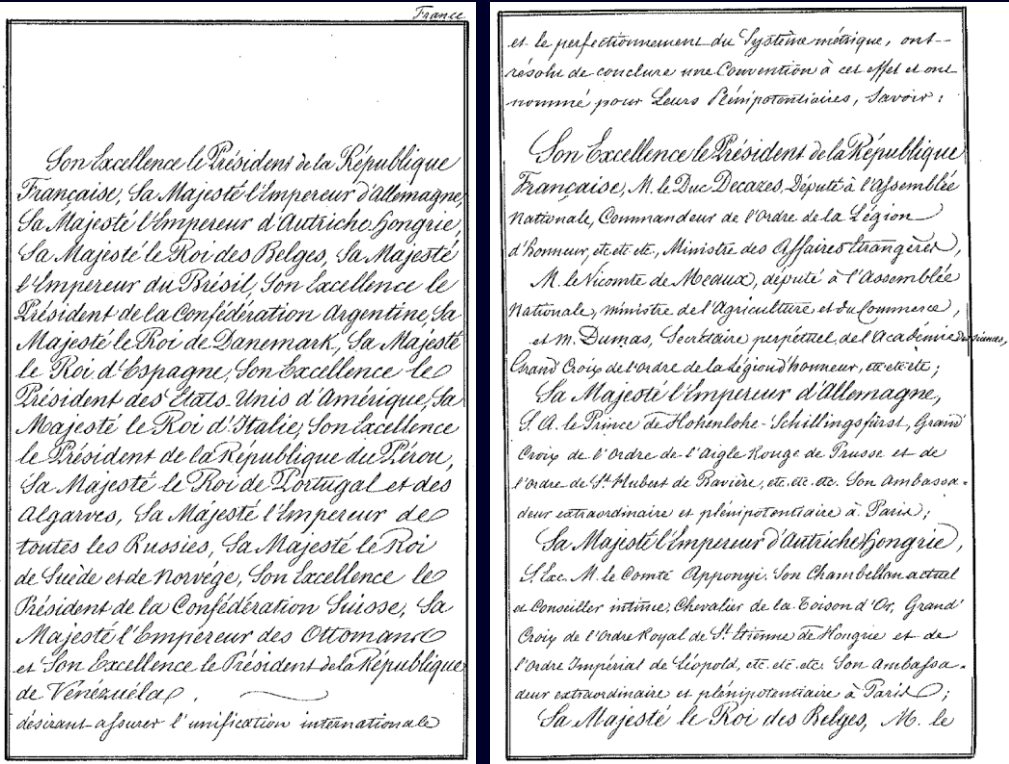 France
Son Excellence le Président de la République
Française, Sa Majesté l'Empereur d'Allemagne,
Sa Majesté l'Empereur d'Autriche Hongrie,
Sa Majesté le Roi des Belges, Sa Majesté
l'Empereur du Brésil, Son Excellence le
Président de la Confédération Argentine, Sa
Majesté le Roi de Danemark, Sa Majesté
le Roi d'Espagne, Son Excellence le
Président des Etats-Unis d'Amérique, Sa
Majesté le Roi d'Italie, Son Excellence
le Président de la République du Pérou,
Sa Majesté le Roi de Portugal et des
Algarves, Sa Majesté l'Empereur de
toutes les Russies, Sa Majesté le Roi
de Suède et de Norvége, Son Excellence le
Président de la Confédération Suisse, Sa
Majesté l'Empereur des Ottomans
et Son Excellence le Président de la République
de Vénézuéla,
désirant assurer l'unification internationale
et le perfectionnement du Système métrique, ont
résolu de conclure une Convention à cet effet et ont
nommé pour Leurs Plénipotentiaires, savoir :
Son Excellence le Président de la République
Française, M. le Duc Decazes, Député à l'Assemblée
Nationale, Commandeur de l'Ordre de la Légion
d'honneur, etc etc etc, Ministre des Affaires Etrangères,
M. le Vicomte de Meaux, député à l'Assemblée
Nationale, ministre de l'Agriculture et du Commerce,
et M. Dumas, Secrétaire perpétuel de l'Académie des Sciences,
Grand Croix de l'ordre de la Légion d'honneur, etc etc etc ;
Sa Majesté l'Empereur d'Allemagne,
S. A. le Prince de Hohenlohe-Schillingsfürst, Grand
Croix de l'Ordre de l'Aigle Rouge de Prusse et de
l'ordre de St Hubert de Bavière, etc. etc. etc. Son Ambassa-
deur extraordinaire et plénipotentiaire à Paris ;
Sa Majesté l'Empereur d'Autriche Hongrie,
S. Exc. M. le Comte Apponyi, Son Chambellan actuel
et Conseiller intime, Chevalier de la Toison d'Or, Grand'
Croix de l'Ordre Royal de St Etienne de Hongrie et de
l'ordre Impérial de Léopold, etc. etc. etc. Son Ambassa-
deur extraordinaire et plénipotentiaire à Paris ;
Sa Majesté le Roi des Belges, M. le